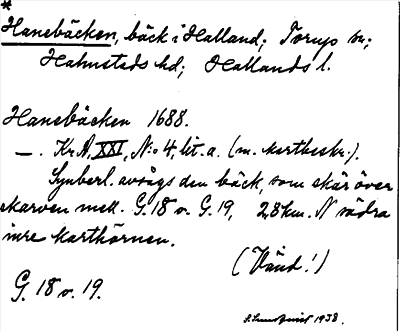 *
Hansbäcken, bäck i Halland; Torups sn;
Halmstads hd; Hallands l.
Hansbäcken 1688.
—. Kr. A, XXI, N:o 4, lit. a. (m. kartbeskr.).
Synberl. avsågs den bäck, som skär över
skarven mell. G. 18 o. G. 19, 28 km. N södra
inre karthörnen.
(Vänd!)
G. 18 o. 19.
S. Lundqvist 1938.